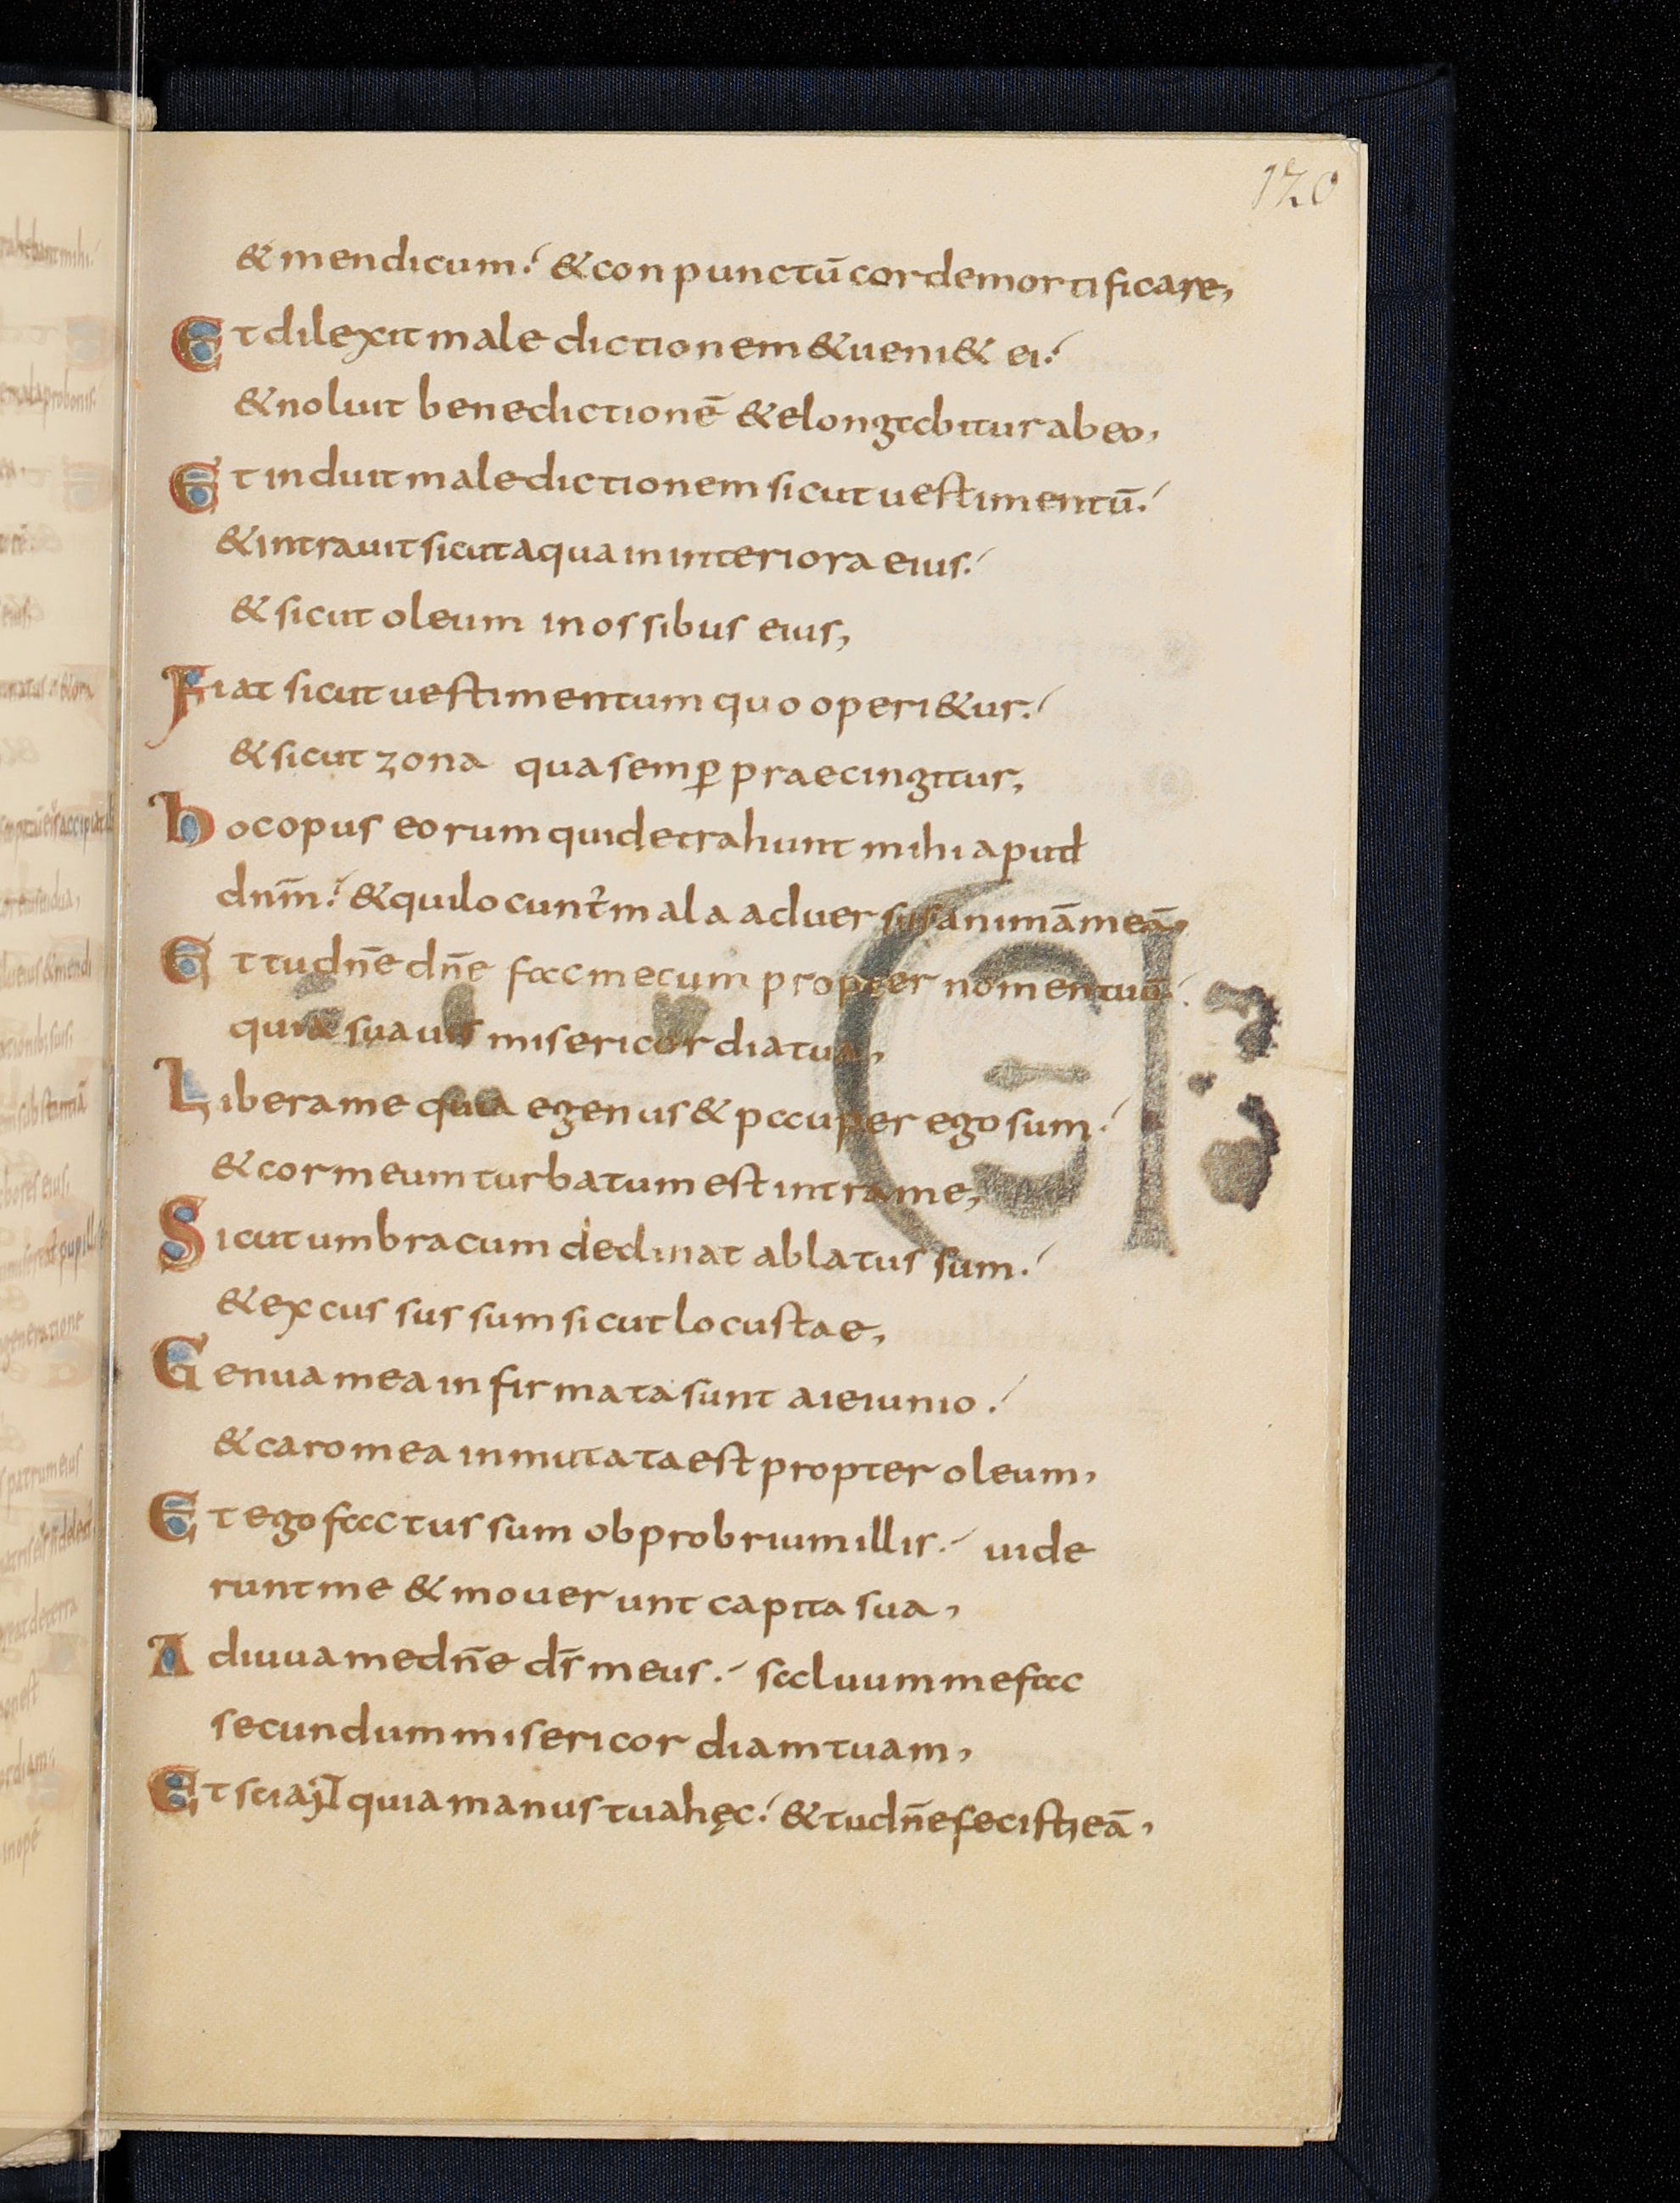 120
& mendicum: & conpunctū corde mortificare,
Et dilexit maledictionem & ueni& ei:
& noluit benedictionē & elongabitur ab eo,
Et induit maledictionem sicut uestimentū:
& intrauit sicut aqua in interiora eius:
& sicut oleum in ossibus eius,
Fiat sicut uestimentum quo operi&ur:
& sicut zona qua semꝑ praecingitur,
hoc opus eorum qui detrahunt mihi apud
dnm̄: & qui locunt̉ mala aduersus animā meā,
Et tu dn̄e dn̄e fac mecum propter nomen tuū:
quia suauis misericordia tua,
Libera me quia egenus & pauper ego sum:
& cor meum turbatum est intra me,
Sicut umbra cum declinat ablatus sum:
& excussus sum sicut locustae,
Genua mea infirmata sunt a ieiunio:
& caro mea inmutata est propter oleum,
Et ego factus sum obprobrium illis: uide
runt me & mouerunt capita sua,
Adiuua me dn̄e ds̄ meus: saluum me fac
secundum misericordiam tuam,
Et sciaɴ̄t quia manus tua hęc: & tu dn̄e fecisti eā,